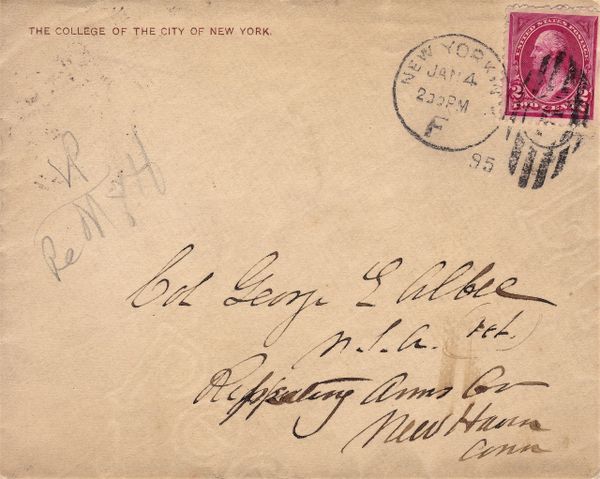 THE COLLEGE OF THE CITY OF NEW YORK.
NEW YORK, N.Y.
JAN 4
2 30 PM
F
95
UNITED STATES POSTAGE
2 2
TWO CENTS
Col George E Albee
U.S.A. (ret.)
Repeating Arms Co
New Haven
Conn